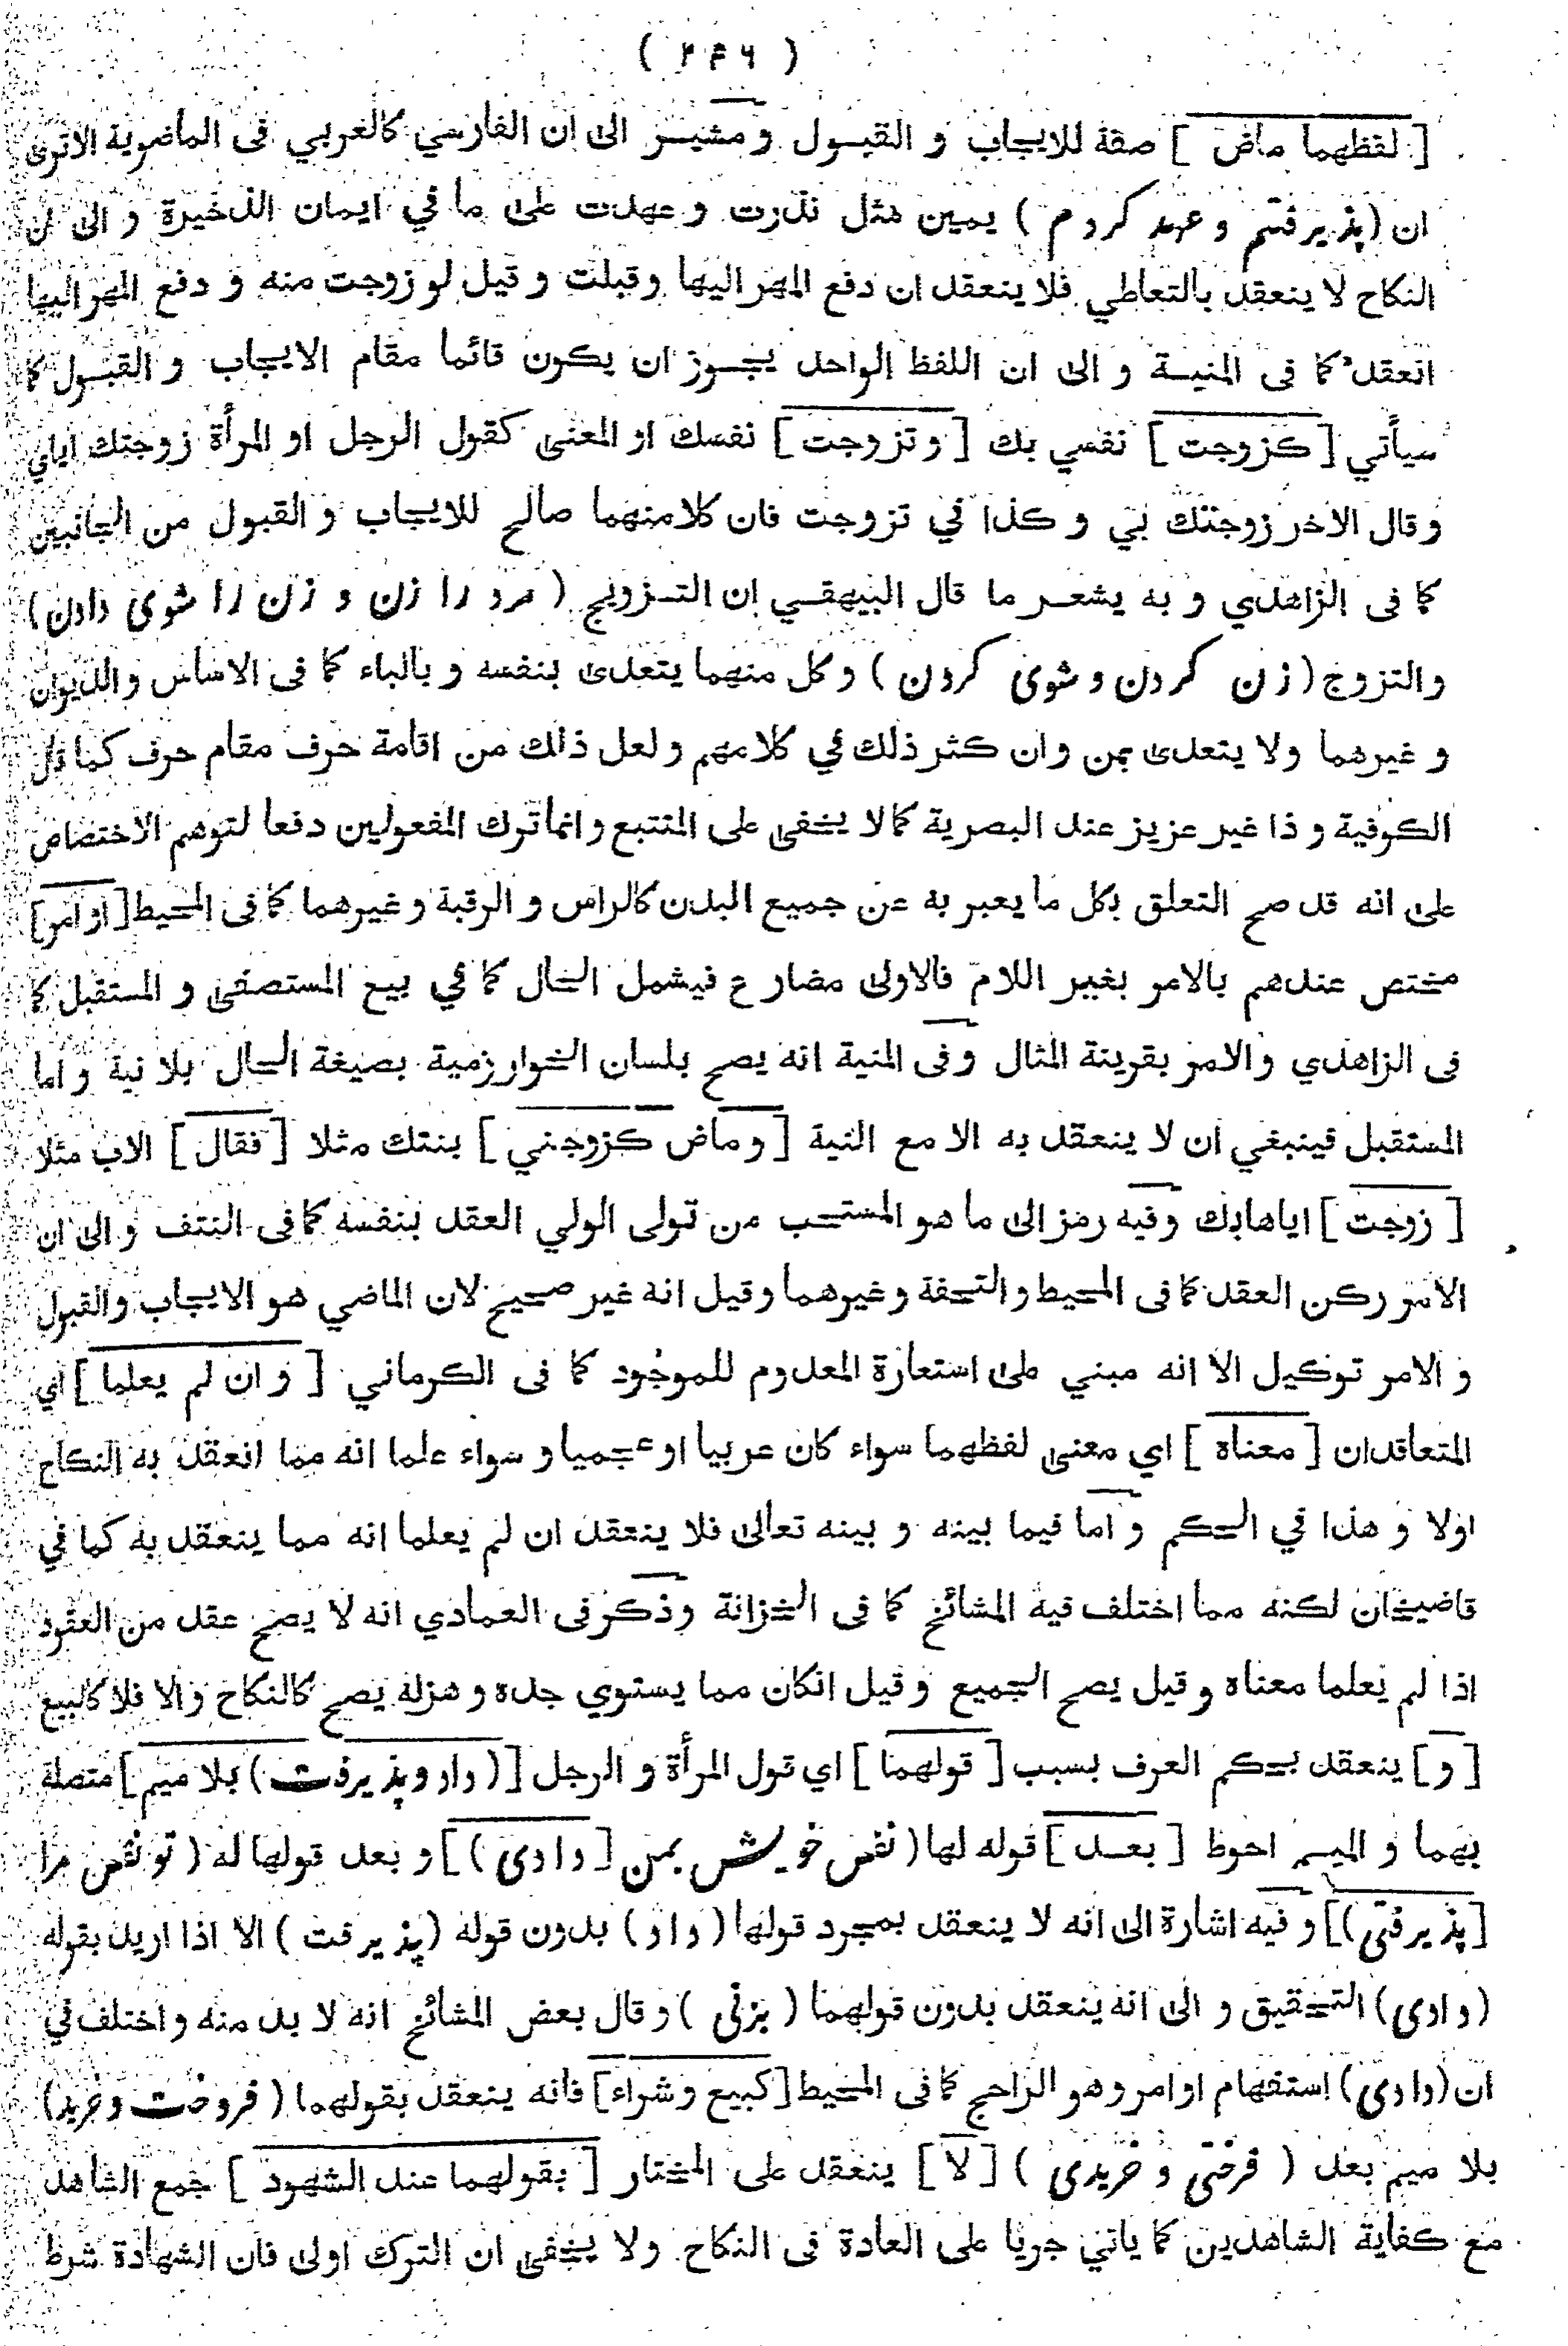 ( ۲۴۶ )
[ لفظهما ماض ] صفة للايجاب و القبول و مشير الى ان الفارسي كالعربي فى الماضوية الاترى
ان ( پذيرفتم و عهد كردم ) يمين مثل نذرت و عهدت على ما في ايمان الذخيرة و الى ان
النكاح لا ينعقد بالتعاطي فلا ينعقد ان دفع المهر اليها وقبلت و قيل لو زوجت منه و دفع المهر اليها
انعقد كما فى المنية و الى ان اللفظ الواحد يجوز ان يكون قائما مقام الايجاب و القبول كما
سيأتي [ كزوجت ] نفسي بك [ و تزوجت ] نفسك او المعنى كقول الرجل او المرأة زوجتك اياي
وقال الاخر زوجتك بي و كذا في تزوجت فان كلا منهما صالح للايجاب و القبول من الجانبين
كما فى الزاهدي و به يشعر ما قال البيهقي ان التزويج ( مرد را زن و زن را شوى دادن )
والتزوج ( زن كردن و شوى كردن ) و كل منهما يتعدى بنفسه و بالباء كما فى الاساس و الديوان
و غيرهما ولا يتعدى بمن وان كثر ذلك في كلامهم ولعل ذلك من اقامة حرف مقام حرف كما قال
الكوفية و ذا غير عزيز عند البصرية كما لا يخفى على المتتبع وانما ترك المفعولين دفعا لتوهم الاختصاص
على انه قد صح التعلق بكل ما يعبر به عن جميع البدن كالراس و الرقبة و غيرهما كما فى المحيط [ او امر ]
مختص عندهم بالامر بغير اللام فالاولى مضارع فيشمل الحال كما في بيع المستصفى و المستقبل كما
فى الزاهدي والامر بقرينة المثال وفى المنية انه يصح بلسان الخوارزمية بصيغة الحال بلا نية و اما
المستقبل فينبغي ان لا ينعقد به الا مع النية [ و ماض كزوجني ] بنتك مثلا [ فقال ] الاب مثلا
[ زوجت ] اياها بك وفيه رمز الى ما هو المستحب من تولى الولي العقد بنفسه كما فى النتف و الى ان
الامر ركن العقد كما فى المحيط و التحفة و غيرهما و قيل انه غير صحيح لان الماضي هو الايجاب والقبول
و الامر توكيل الا انه مبني على استعارة المعدوم للموجود كما فى الكرماني [ و ان لم يعلما ] اي
المتعاقدان [ معناه ] اي معنى لفظهما سواء كان عربيا او عجميا و سواء علما انه مما انعقد به النكاح
اولا و هذا في الحكم و اما فيما بينه و بينه تعالى فلا ينعقد ان لم يعلما انه مما ينعقد به كما في
قاضيخان لكنه مما اختلف فيه المشائخ كما فى الخزانة وذكر فى العمادي انه لا يصح عقد من العقود
اذا لم يعلما معناه و قيل يصح الجميع و قيل انكان مما يستوي جده و هزله يصح كالنكاح والا فلا كالبيع
[ و ] ينعقد بحكم العرف بسبب [ قولهما ] اي قول المرأة و الرجل [ ( داد و پذيرفت ) بلا ميم ] متصلة
بهما و الميم احوط [ بعد ] قوله لها ( نفس خويش بمن [ دادى ) ] و بعد قولها له ( تو نفس مرا
[ پذيرفتى ) ] و فيه اشارة الى انه لا ينعقد بمجرد قولها ( داد ) بدون قوله ( پذيرفت ) الا اذا اريد بقوله
( دادى ) التحقيق و الى انه ينعقد بدون قولهما ( بزنى ) و قال بعض المشائخ انه لا بد منه واختلف في
ان ( دادى ) استفهام او امر وهو الراجح كما فى المحيط [ كبيع وشراء ] فانه ينعقد بقولهما ( فروخت و خريد )
بلا ميم بعد ( فرختى و خريدى ) [ لا ] ينعقد على المختار [ بقولهما عند الشهود ] جمع الشاهد
مع كفاية الشاهدين كما ياتي جريا على العادة فى النكاح ولا يخفى ان الترك اولى فان الشهادة شرط